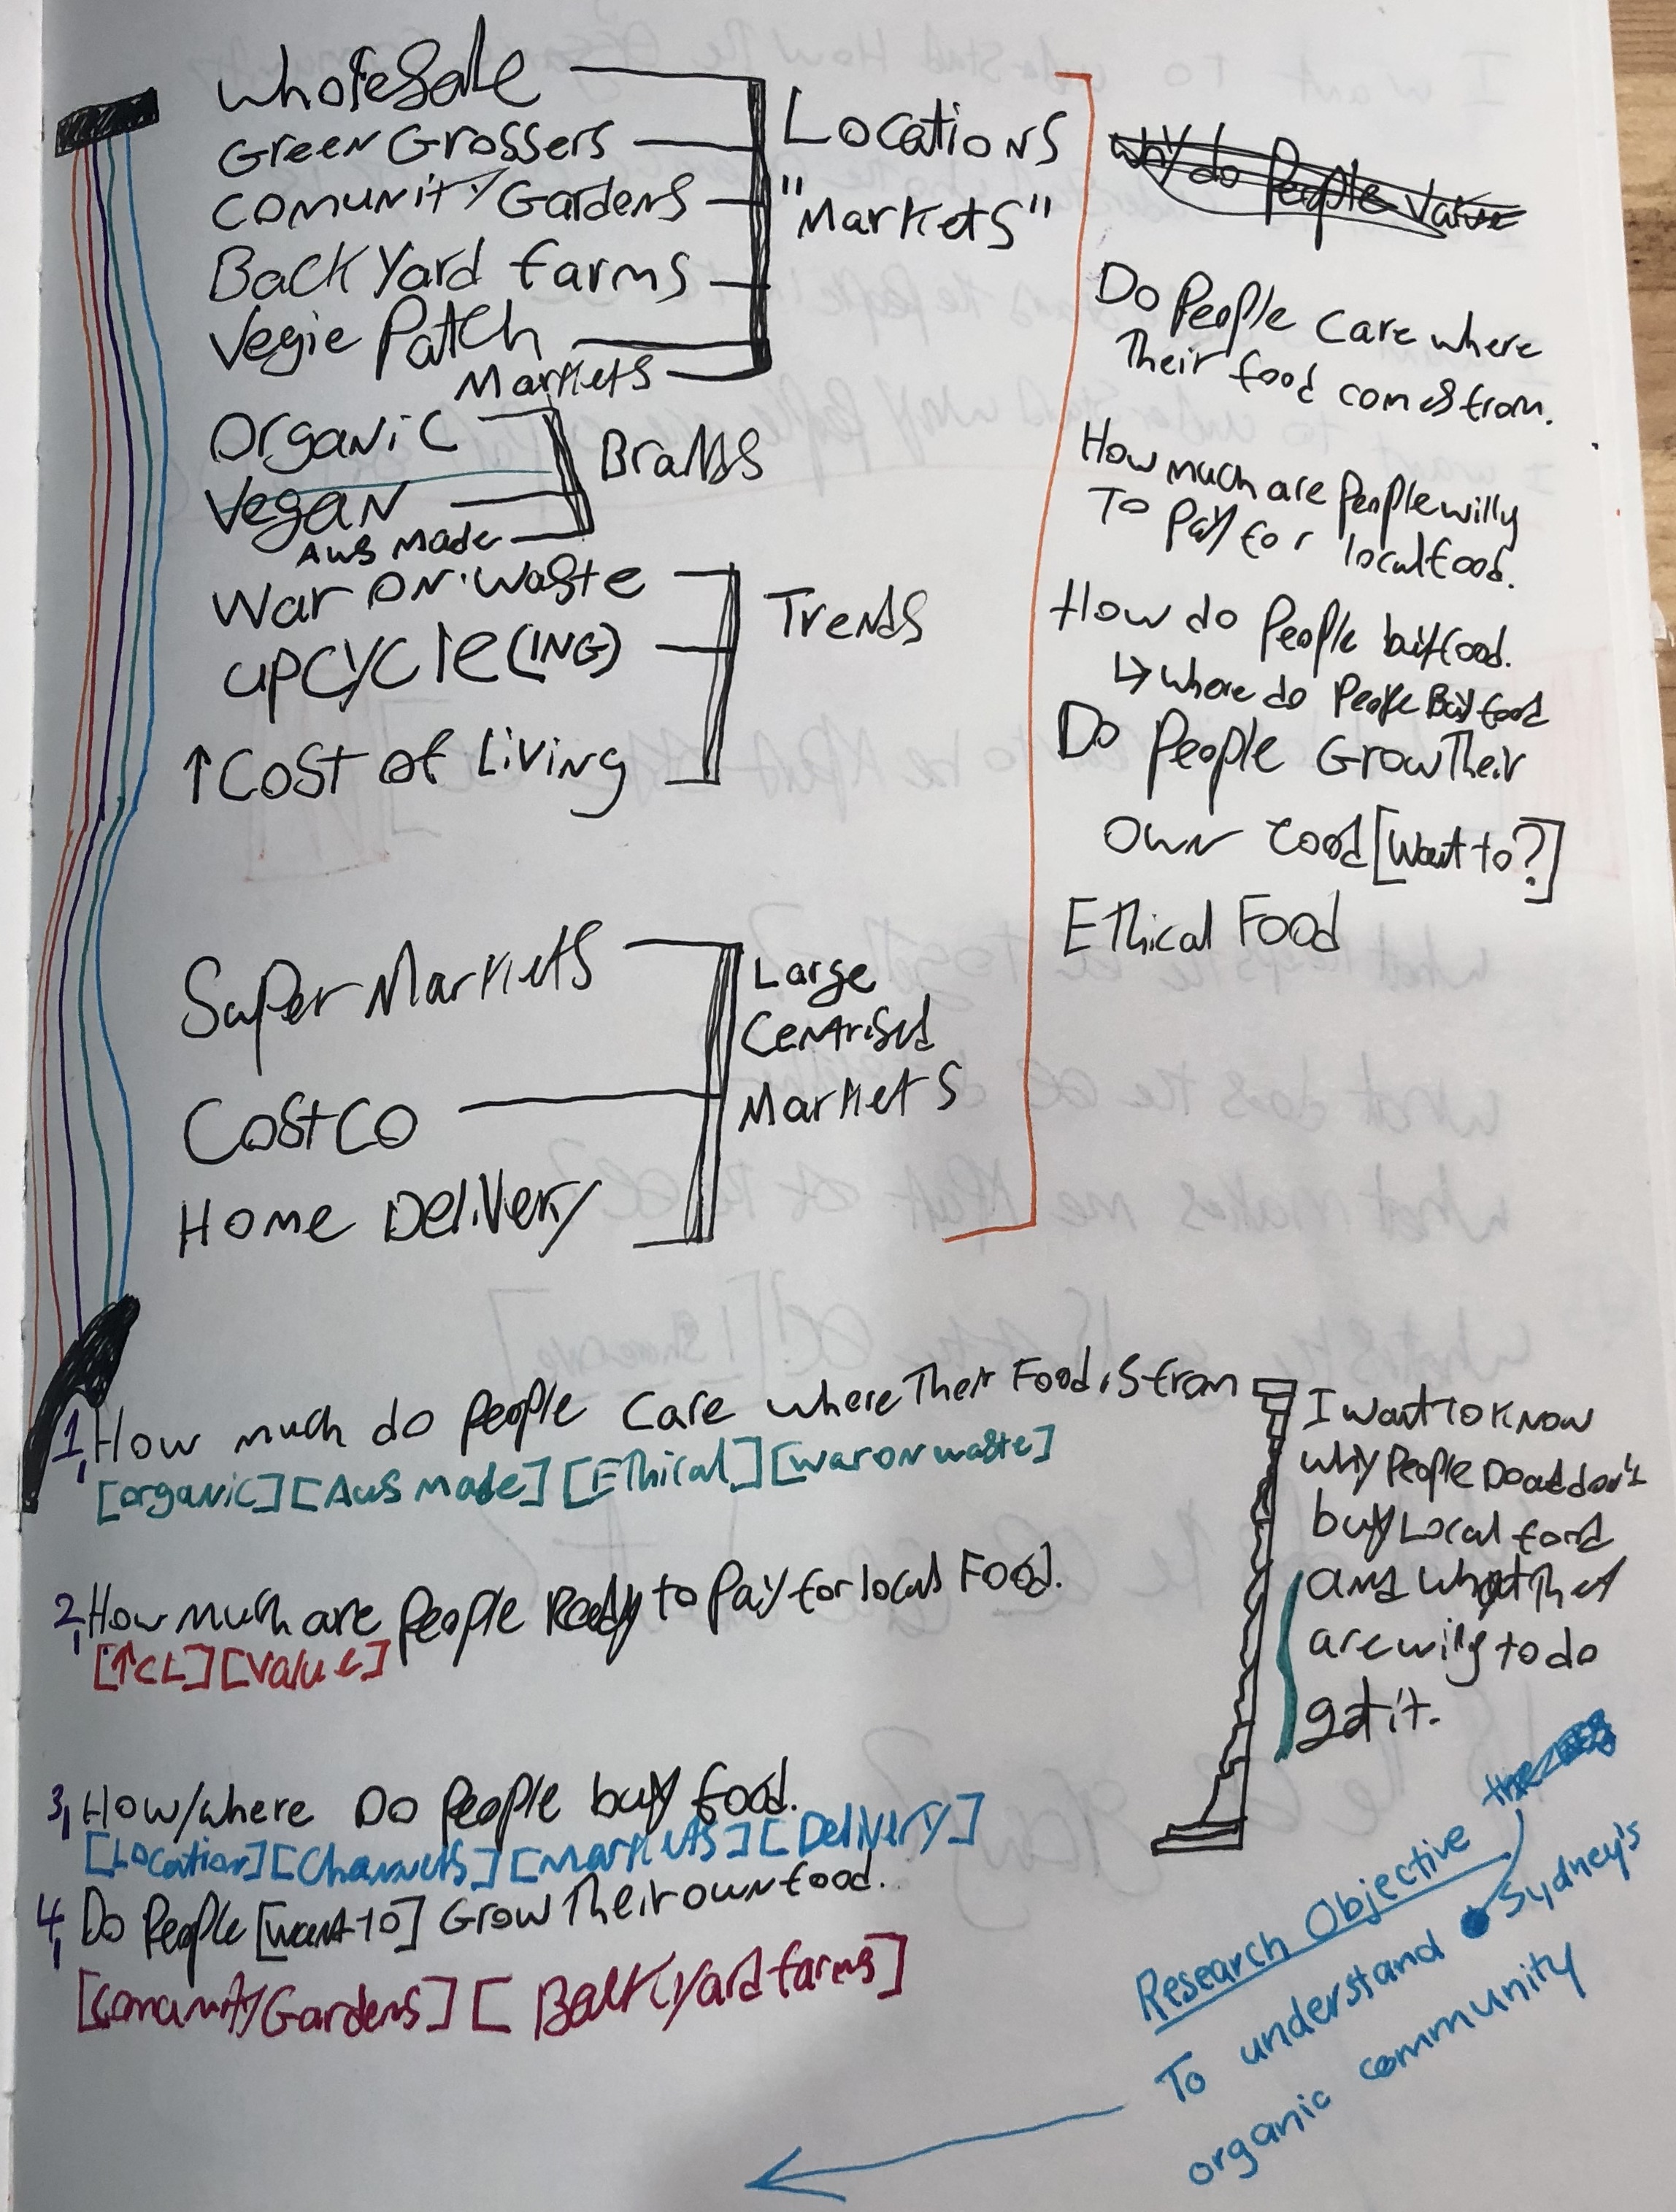 Wholesale
Green Grossers
Comunity Gardens
Back Yard farms
Vegie Patch
Markets
Locations
"Markets"
Organic
Vegan
Aus Made
Brands
War on waste
upcycle(ING)
↑Cost of Living
Trends
Super Markets
Costco
Home Delivery
Large
Centrised
Markets
Why do People Value
Do People care where
Their food comes from.
How much are People willy
To Pay for local food.
How do People buy food.
↳ where do People Buy food
Do People Grow Their
Own food [Want to?]
Ethical Food
1, How much do People Care where Their Food is from
[organic] [Aus Made] [Ethical] [war on waste]
2, How much are People Ready to Pay for local Food.
[↑CL] [Value]
3, How/where Do People buy food.
[Location] [Channels] [Markets] [Delivery]
4, Do People [want to] Grow Their own food.
[Comunity Gardens] [Back Yard farms]
I want to know
why People Do and don't
buy Local food
and what they
are willg to do
get it.
Research Objective
To understand Sydney's
organic community